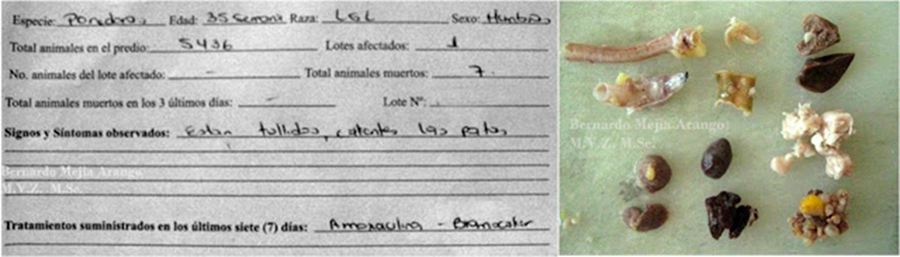 Especie: Ponedora Edad: 35 Semana Raza: LSL Sexo: Hembras
Total animales en el predio: 5436 Lotes afectados: 1
No. animales del lote afectado: - Total animales muertos: 7.
Total animales muertos en los 3 últimos días: - Lote Nº:
Signos y Síntomas observados: Estan tullidas, las patas
Bernardo Mejía Arango
M.V.Z. M.Sc.
Tratamientos suministrados en los últimos siete (7) días: -
Bernardo Mejía Arango
M.V.Z. M.Sc.